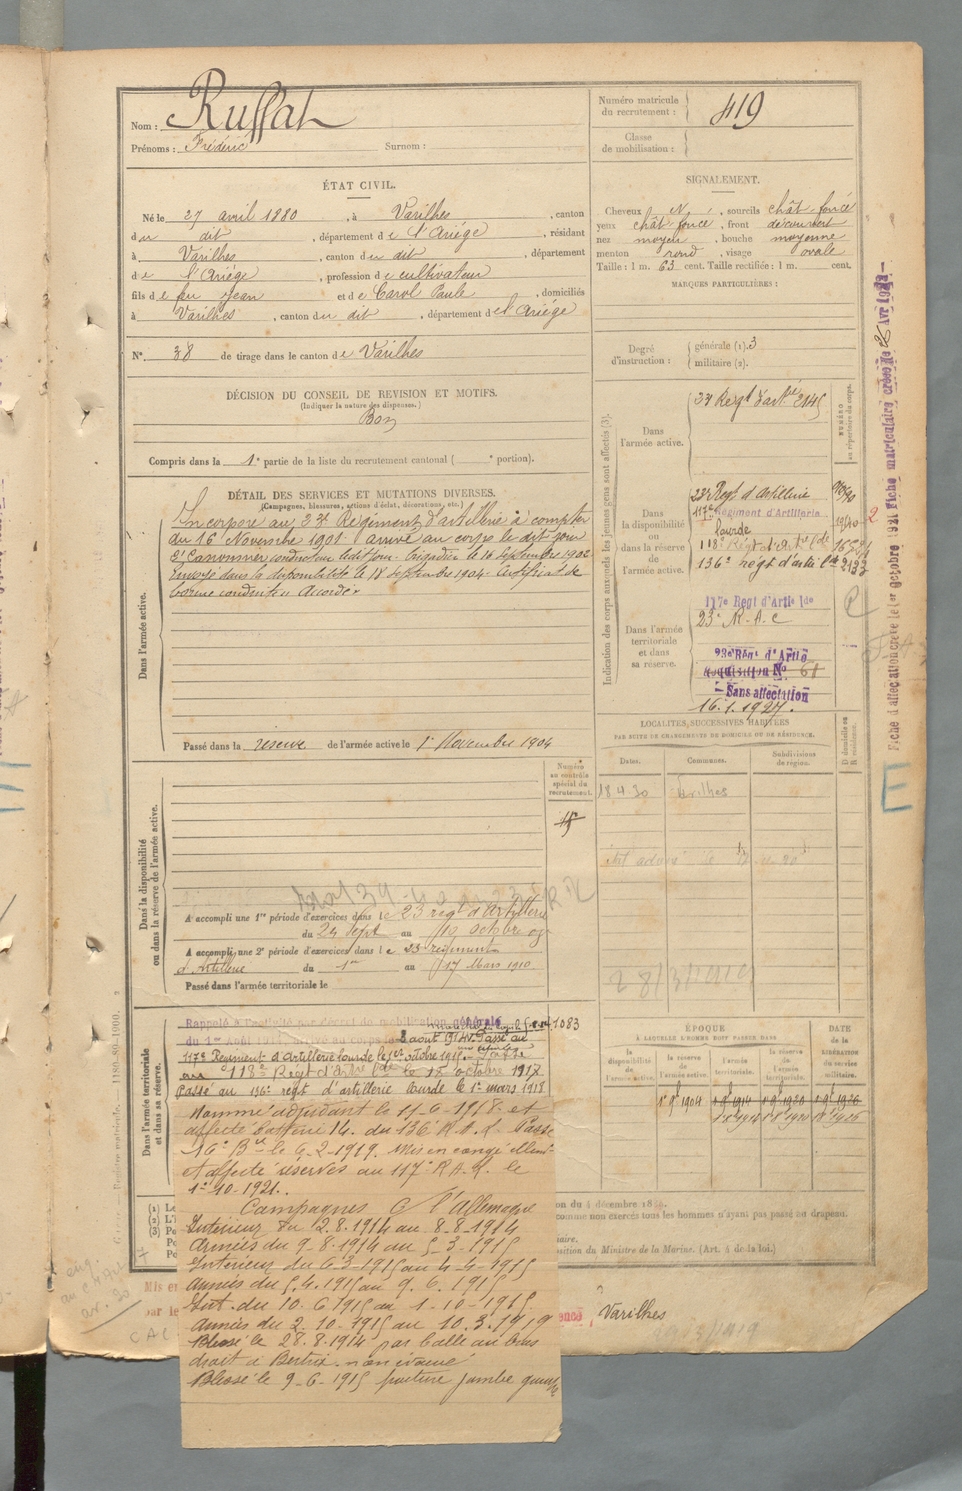 Nom : Ruffat
Prénoms : Frédéric Surnom :
Numéro matricule du recrutement : 419
Classe de mobilisation :
ÉTAT CIVIL.
Né le 27 avril 1880, à Varilhes, canton
du dit, département de l'Ariége, résidant
à Varilhes, canton du dit, département
de l'Ariége, profession de cultivateur
fils de feu Jean et de Carol Paule, domiciliés
à Varilhes, canton du dit, département de l'Ariége
N°. 38 de tirage dans le canton de Varilhes
SIGNALEMENT.
Cheveux N, sourcils chât foncé
yeux chât foncé, front découvert
nez moyen, bouche moyenne
menton rond, visage ovale
Taille : 1 m. 63 cent. Taille rectifiée : 1 m. cent.
MARQUES PARTICULIÈRES :
Degré d'instruction : générale (1). 3
militaire (2).
DÉCISION DU CONSEIL DE REVISION ET MOTIFS.
(Indiquer la nature des dispenses.)
Bon
Compris dans la 1e partie de la liste du recrutement cantonal ( e portion).
DÉTAIL DES SERVICES ET MUTATIONS DIVERSES.
(Campagnes, blessures, actions d'éclat, décorations, etc.)
Dans l'armée active.
Incorporé au 23e Régiment d'artillerie à compter
du 16 Novembre 1901. arrivé au corps le dit jour
2e Canonnier conducteur ledit jour. Brigadier le 18 Septembre 1902
Envoyé dans la disponibilité le 18 Septembre 1904. Certificat de
bonne conduite " Accordé "
Passé dans la réserve de l'armée active le 1er Novembre 1904
Indication des corps auxquels les jeunes gens sont affectés (3).
NUMÉRO au répertoire du corps.
Dans l'armée active.
23e Regt d'artie 2145
Dans la disponibilité ou dans la réserve de l'armée active.
23e Regt d'Artillerie
117e Régiment d'Artillerie
lourde
118e Régt d'Artie lde
136e régt d'artie lde
Dans l'armée territoriale et dans sa réserve.
117e Regt d'Artie lde
23e R.A.C
23e Régt d'Artie
Réquisition No 61
Sans affectation
16.1.1927.
LOCALITÉS SUCCESSIVES HABITÉES
PAR SUITE DE CHANGEMENTS DE DOMICILE OU DE RÉSIDENCE.
Dates. Communes. Subdivisions de région. D domicile ou R résidence.
18 4 30 Varilhes
28/3/1919
Dans la disponibilité ou dans la réserve de l'armée active.
Numéro au contrôle spécial du recrutement.
A accompli une 1re période d'exercices dans le 23 régt d'Artillerie
du 24 Sept au 10 octobre 07
A accompli une 2e période d'exercices dans le 23 régiment
d'Artillerie du 1er au 17 Mars 1910
Passé dans l'armée territoriale le
Dans l'armée territoriale et dans sa réserve.
Rappelé à l'activité par décret de mobilisation générale
du 1er Août 1914. arrivé au corps le 3 août 1914. Passé au
117e Régiment d'Artillerie lourde le 1er octobre 1915. Passé
au 118e Régt d'Artie lde le 1er octobre 1917
Passé au 136e régt d'artillerie lourde le 1er mars 1918
1083
Nommé adjudant le 11-6-1918 et
affecté batterie 14. du 136e R.A.L. Passé
16e Bie le 4-2-1919. Mis en congé illimité
et affecté réserves au 117e R.A.L. le
1er-10-1921.
Campagnes C/ l'Allemagne
Intérieur du 2.8.1914 au 8.8.1914
Armées du 9-8-1914 au 5-3-1915
Intérieur du 6-3-1915 au 4-4-1915
Armées du 5.4.1915 au 9.6.1915
Int. du 10.6.1915 au 1-10-1915
Armées du 2.10-1915 au 10.3.1919
Blessé le 28.8.1914 par balle au bras
droit à Bertrix. non évacué
Blessé le 9-6-1915 fracture jambe gauche
ÉPOQUE
À LAQUELLE L'HOMME DOIT PASSER DANS
la disponibilité de l'armée active. la réserve de l'armée active. l'armée territoriale. la réserve de l'armée territoriale. DATE de la LIBÉRATION du service militaire.
1er 9bre 1904 1er 9bre 1914 1er 9bre 1920 1er 9bre 1926
du 4 décembre 18
comme non exercés tous les hommes n'ayant pas passé au drapeau.
osition du Ministre de la Marine. (Art. 4 de la loi.)
Mis en
par le
Varilhes
Fiche d'affectation créée le 1er octobre 1921 Fiche matriculaire créée le
E